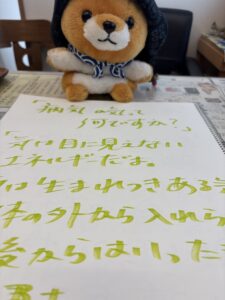 「病気の気って
何ですか?」
「気は目に見えない
エネルギーだよ。
は生まれつきある
体の外から入れら
後からはいった